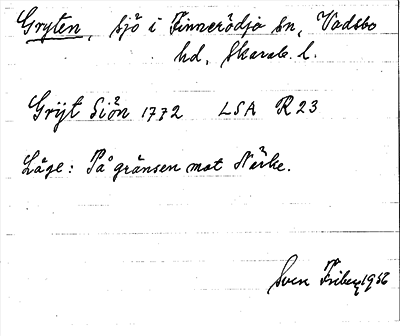 Gryten, sjö i Finnerödja sn, Vadsbo
hd, Skarab. l.
Grÿt Siön 1772 LSA R 23
Läge: På gränsen mot Närke.
Sven Friberg 1956